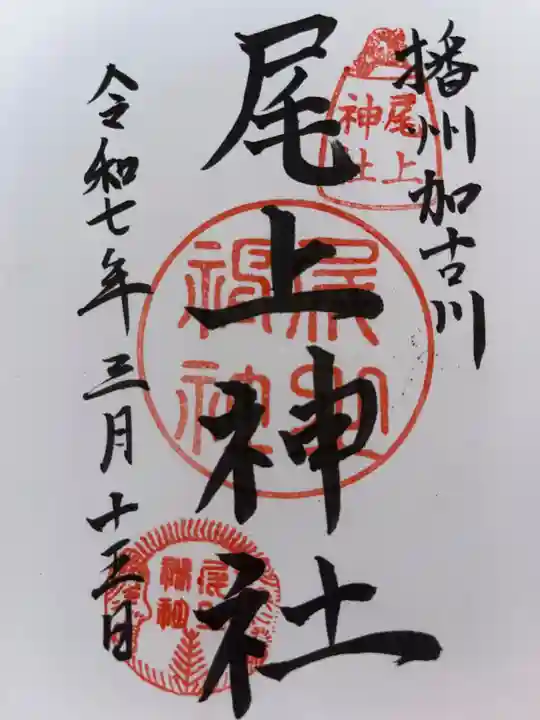 播州加古川
尾上
神社
尾上神社
令和七年三月十五日